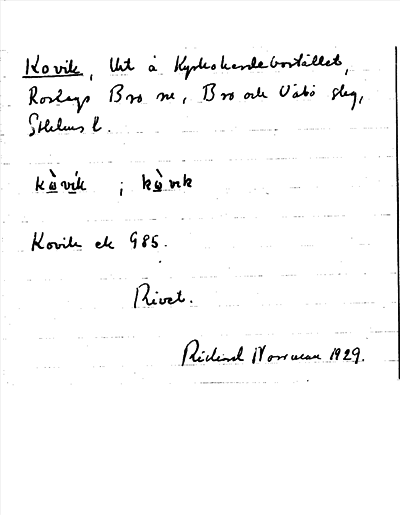 Kovik, Urt å Kyrkoherdebostället,
Roslags Bro sn, Bro och Vätö slg,
Sthlms l.
kὼvi̬k ; kὼvık
Kovik ek 985.
Rivet.
Rickard Norrman 1929.